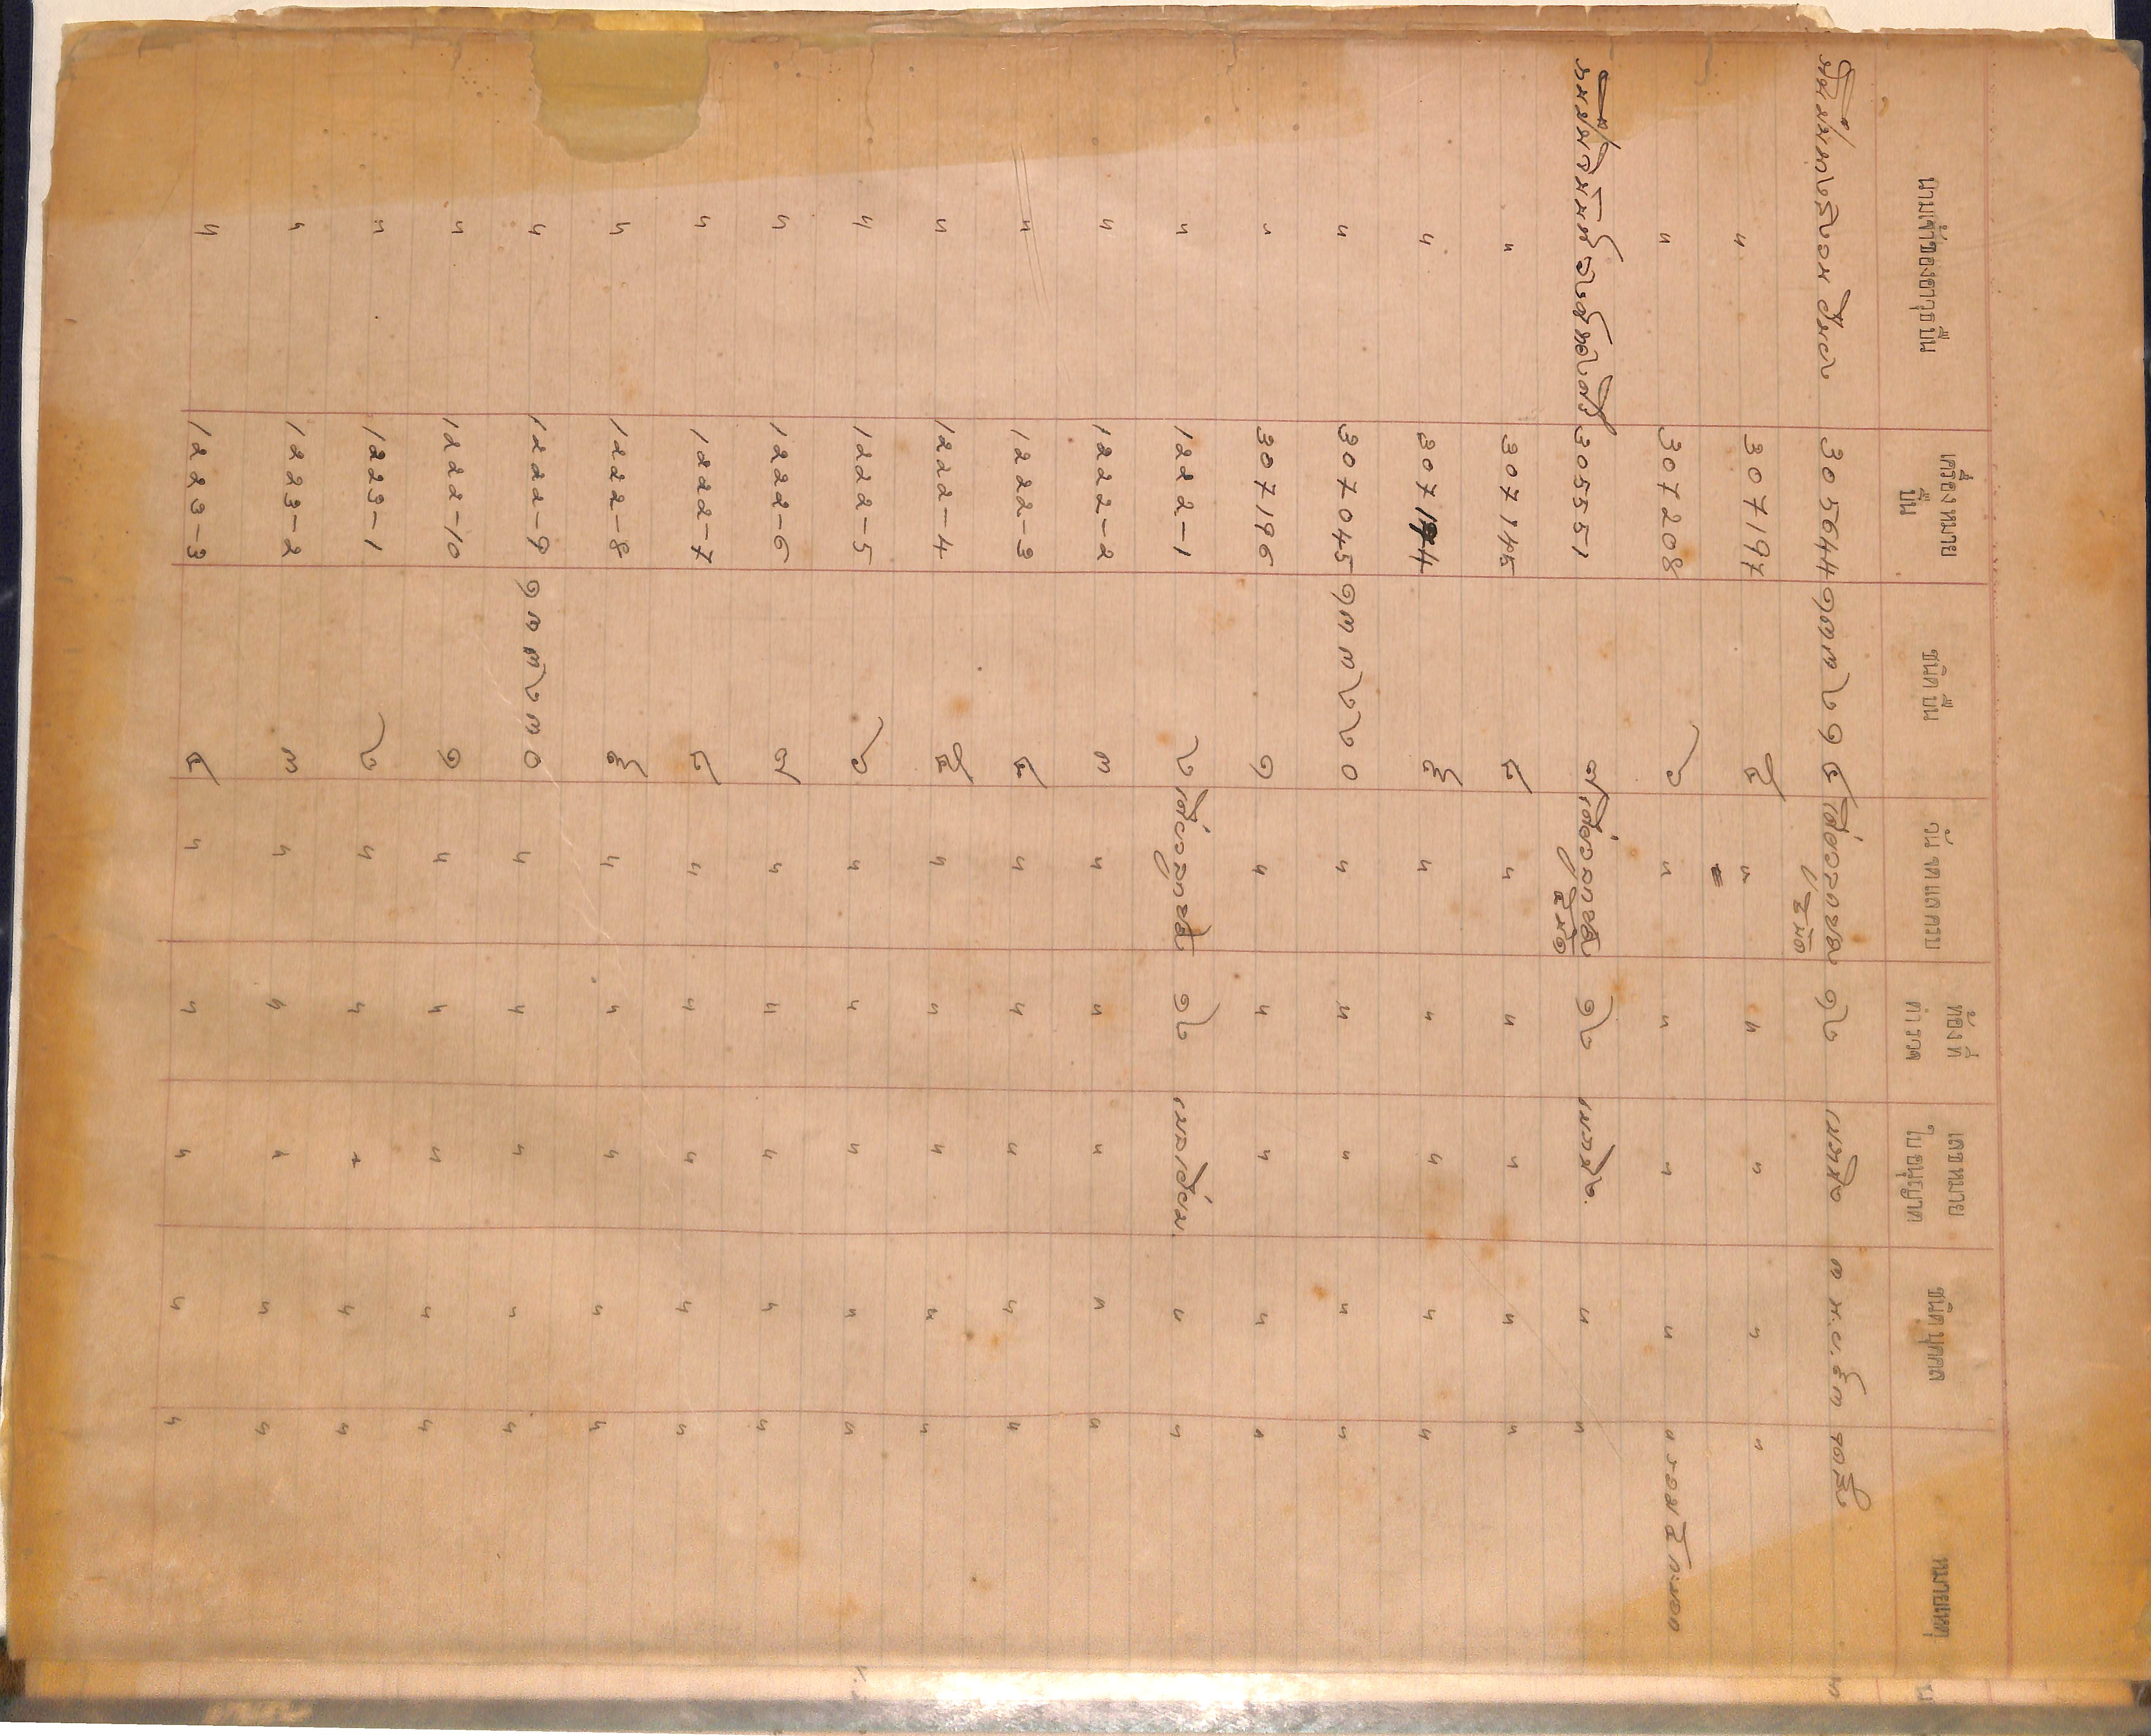 นามเจ้าของอาวุธปืน เครื่องหมาย ปืน ชนิดปืน วัน จด แล ครบ ท้องที่ ตำรวจ เลขหมาย ใบอนุญาต ชนิด บุคคล หมายเหตุ
305644 ๑๓๓๒๑๔ เดี่ยวลูกซอง ๑๒ ๓ พ.ย. ๙๓
๕ นัด
" 307197 ๕ " " " " "
" 307208 ๖ " " " " " รวม ๕ กะบอก
305551 ๗ เดี่ยวลูกซอง ๑๒ " "
๕ นัด
" 307145 ๘ " " " " "
" 307174 ๙ " " " " "
" 307045 ๑๓๓๒๒๐ " " " " "
" 307196 ๑ " " " " "
" 1222-1 ๒ เดี่ยวลูกซอง ๑๒ " "
" 1222-2 ๓ " " " " "
" 1222-3 ๔ " " " " "
" 1222-4 ๕ " " " " "
" 1222-5 ๖ " " " " "
" 1222-6 ๗ " " " " "
" 1222-7 ๘ " " " " "
" 1222-8 ๙ " " " " "
" 1222-9 ๑๓๓๒๓๐ " " " " "
" 1222-10 ๑ " " " " "
" 1223-1 ๒ " " " " "
" 1223-2 ๓ " " " " "
" 1223-3 ๔ " " " " "